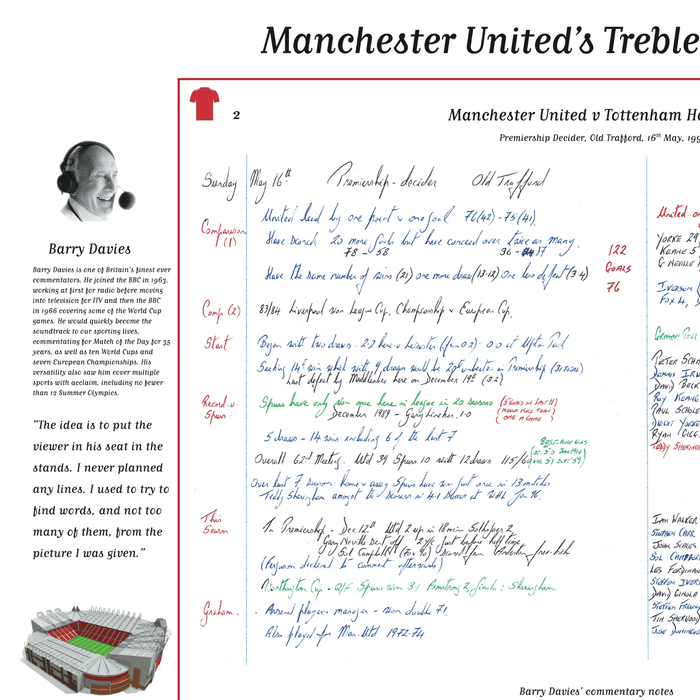 Manchester United's Treble
2
Manchester United v Tottenham Ho
Premiership Decider, Old Trafford, 16th May, 199
Barry Davies
Barry Davies is one of Britain's finest ever
commentators. He joined the BBC in 1963,
working at first for radio before moving
into television for ITV and then the BBC
in 1966 covering some of the World Cup
games. He would quickly become the
soundtrack to our sporting lives,
commentating for Match of the Day for 35
years, as well as ten World Cups and
seven European Championships. His
versatility also saw him cover multiple
sports with acclaim, including no fewer
than 12 Summer Olympics.
"The idea is to put the
viewer in his seat in the
stands. I never planned
any lines. I used to try to
find words, and not too
many of them, from the
picture I was given."
Sunday May 16th Premiership - decider Old Trafford
Comparison (1)
United lead by one point & one goal 76(42) - 75(41)
Have scored 20 more goals but have conceded over twice as many.
78 - 58 36 - 17
Have the same number of wins (21) one more draw (13-12) One less defeat (3-4)
122
GOALS
76
Comp. (2) 83/84 Liverpool won League Cup, Championship & European Cup.
Start Began with two draws - 2.2 here v Leicester 0.0 at
Seeking 14th win which with 9 draws would be 20th unbeaten in Premiership (31)
Last defeat by Middlesbro here on December 19th (3.2)
Record. v. Spurs. Spurs have only won once here in league in 20 seasons
December 1989 - Gary Lineker. 1.0
(ONE A GAME)
5 draws - 14 wins including 6 of the last 7
BEST.
Overall 62nd Meeting. Utd 39 Spurs 10 with 12 draws 115/60
Over last 7 seasons home & away Spurs have won just once in 13 matches
Teddy Sheringham amongst the scorers in 4.1 Jan 96.
This Season
In Premiership - Dec 12th Utd 2 up in 18 mins Solksjaer 2
Gary Neville sent off just before half time
Sol Campbell scored from Anderton free-kick
(Ferguson declined to comment afterwards)
Worthington Cup - Q/F Spurs won 3.1 Armstrong 2, Ginola: Sheringham.
Graham. - Arsenal player & manager - won double 71.
Also played for Man. Utd 1972-74
United
YORKE 29,
KEANE 5
G NEVILLE
IVERSON
FOX 4,
PETER SCH
DENNIS IRW
DAVID BECK
ROY KEANE
PAUL SCHOLE
DWIGHT YORKE
RYAN GIGG
TEDDY SHERING
IAN WALKER
STEPHEN CARR
JOHN SCALES
SOL CAMPBE
LES FERDINAN
STEFFEN IVERS
DAVID GINOLA
STEFFEN FREUN
TIM SHERWOO
JOSE DOMING
Barry Davies' commentary notes